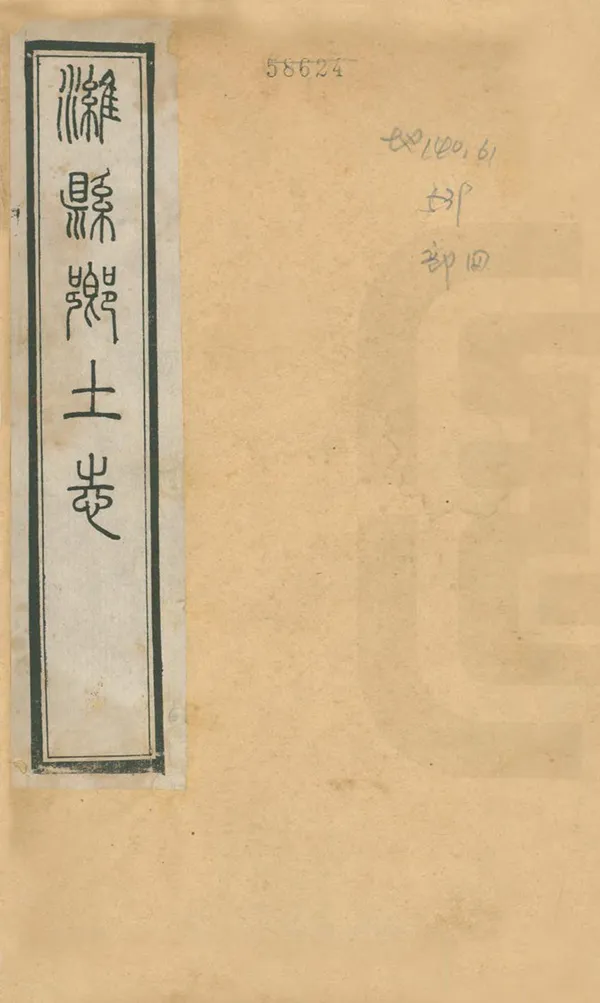 濰縣鄉土志
58624
140.61